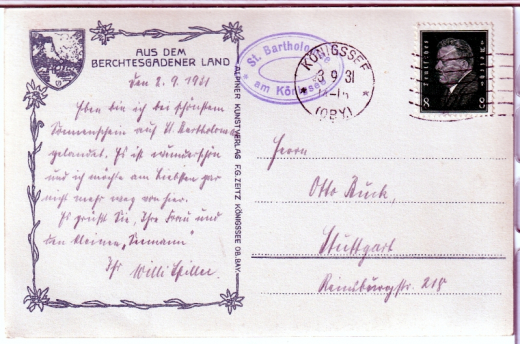 AUS DEM
BERCHTESGADENER LAND
Den 2. 9. 1931
Eben bin ich bei schönstem
Sonnenschein auf St. Bartholomä
gelandet. Es ist wunderschön
und ich möchte am liebsten gar
nicht mehr weg von hier.
Es grüßt Sie, Ihre Frau und
den kleinen „Seemann"
Ihr Willi
ALPINER KUNSTVERLAG F.G. ZEITZ KÖNIGSSEE OB. BAY.
St. Bartholomae
am Königssee
KÖNIGSSEE
3 9 31
(OBY.)
Deutsches Reich
8 8
Herrn
Otto Ruck,
Stuttgart
Reinsburgstr.